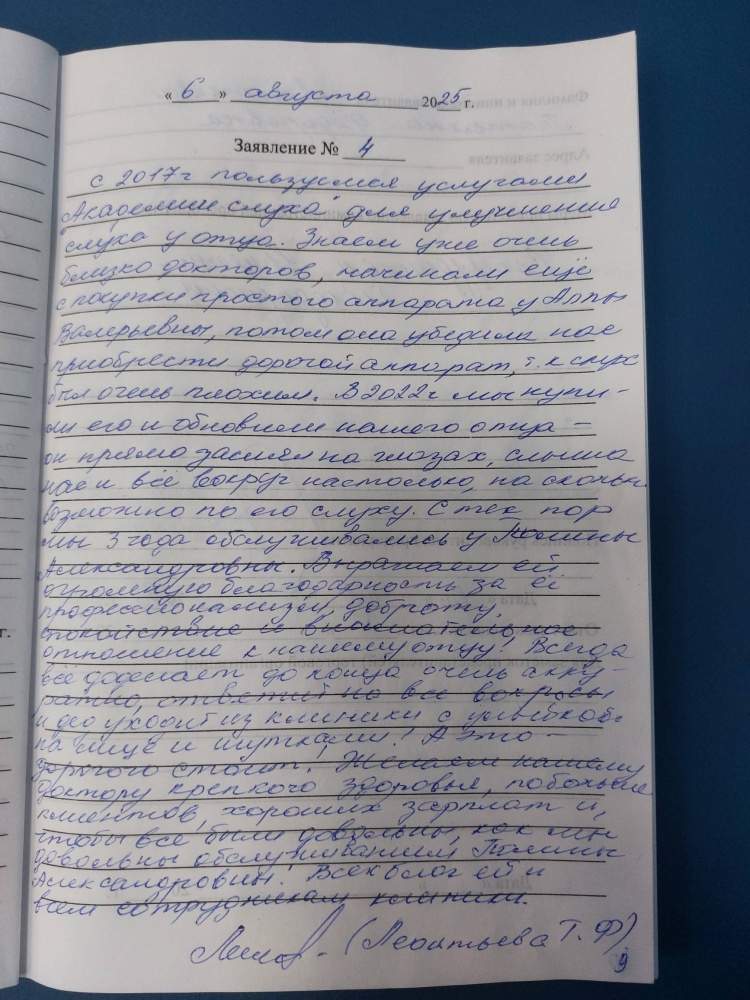 « 6 » августа 2025 г.
Заявление № 4
С 2017 г пользуемся услугами
"Академии слуха" для улучшения
слуха у отца. Знаем уже очень
близко докторов, начинали ещё
с покупки простого аппарата у Аллы
Валерьевны, потом она убедила нас
приобрести дорогой аппарат, т.к слух
был очень плохим. В 2022 г мы купи-
ли его и обновили нашего отца –
он прямо засиял на глазах, слыша
нас и всё вокруг настолько, на сколько
возможно по его слуху. С тех пор
мы 3 года обслуживались у Полины
Александровны. Выражаем ей
огромную благодарность за её
профессионализм, доброту,
спокойствие и внимательное
отношение к нашему отцу! Всегда
все доделает до конца очень акку-
ратно, ответит на все вопросы
и дед уходит из клиники с улыбкой
на лице и шутками! А это –
дорогого стоит! Желаем нашему
доктору крепкого здоровья, побольше
клиентов, хороших зарплат и,
чтобы все были довольны, как мы
довольны обслуживанием Полины
Александровны. Всех благ ей и
всем сотрудникам клиники.
(Леонтьева Т. Ф)
9
г.